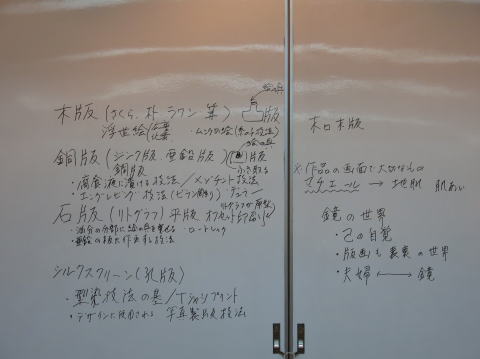 絵の具
木版（さくら、朴、ラワン 等） 凸版
浮世絵
銅版（ジンク版、亜鉛版） 凹版
銅版 ふき取る
・腐食液に漬ける技法／メゾチント技法
・エングレービング技法（ビラン彫り）
石版（リトグラフ）平版 オフセット印刷
・油分の部分に絵の具を乗せる ・ロートレック
シルクスクリーン（孔版）
・型染技法の基／Tシャツプリント
・デザインに使用される 写真製版技法
木口木版
※作品の画面で大切なもの
マチエール → 地肌 肌あい
鏡の世界
・己の自覚
・版画も裏裏の世界
・夫婦 ←→ 鏡